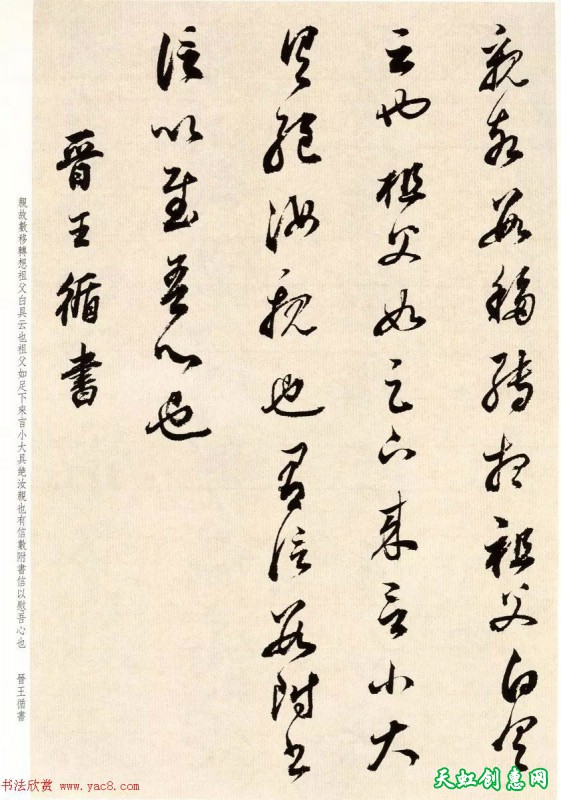 親故數移轉想祖父白具
云也祖父如足下來言小大
具絕汝親也有信數附書
信以慰吾心也
晉王循書
親故數移轉想祖父白具云也祖父如足下來言小大具絕汝親也有信數附書信以慰吾心也 晉王循書
书法欣赏 www.yac8.com
天虹创惠网